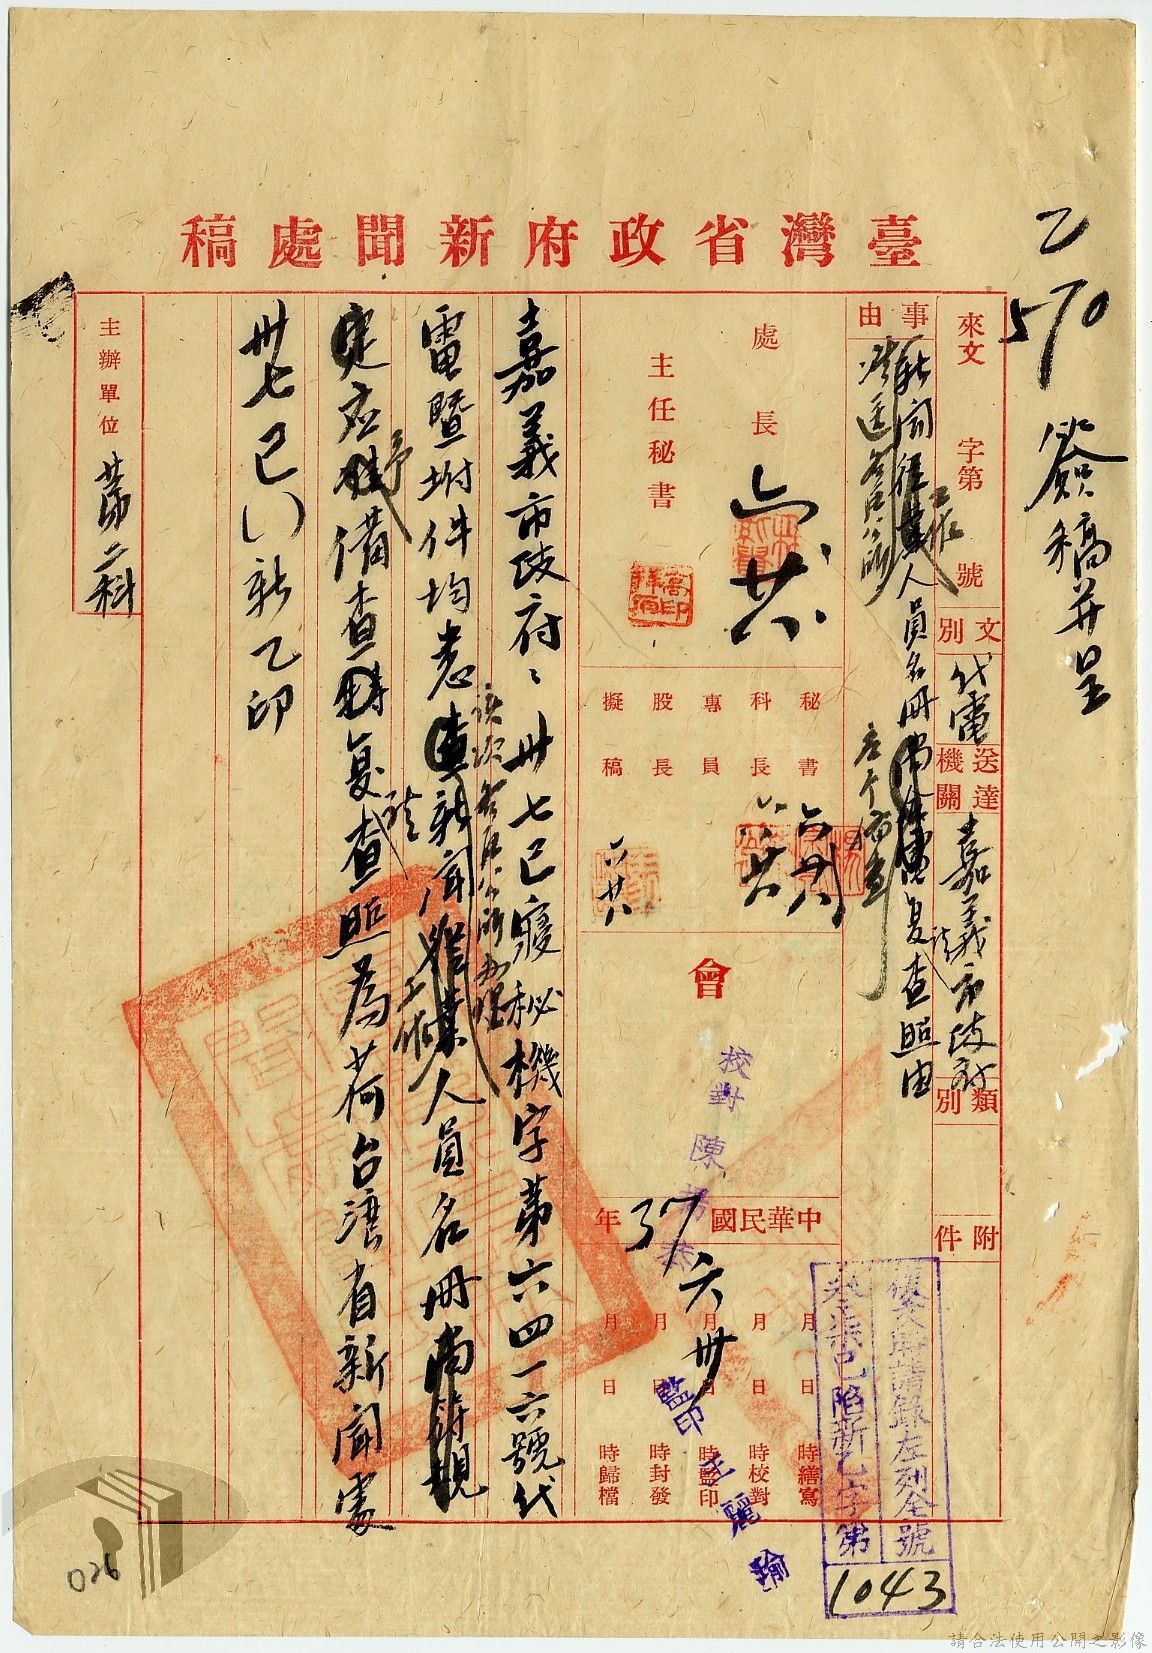 臺灣省政府新聞處稿
乙570
簽稿并呈
來文 字第 號
文別
代電
送達機關
嘉義市政府
類別
附件
事由
新聞
工作
人員名冊
復
請
查照由
處長
六 廿八
主任秘書
秘書
科長
專員
股長
擬稿
六 廿八
六 廿八
六 廿八
會
校對 陳
中華民國37年
六 卅
月 日 時繕寫
月 日 時校對
月 日 時監印
月 日 時封發
月 日 時歸檔
監印 王麗瑜
復文時請錄左列全號
參柒巳陷新乙字第
1043
嘉義市政府：卅七巳寢秘機字第六四一六號代
電暨坿件均悉
該項
新聞
工作
人員名冊尚符規
定應
予
備查
復
請
查照為荷台灣省新聞處
卅七巳( )新乙印
主辦單位
第二科
026
請合法使用公開之影像